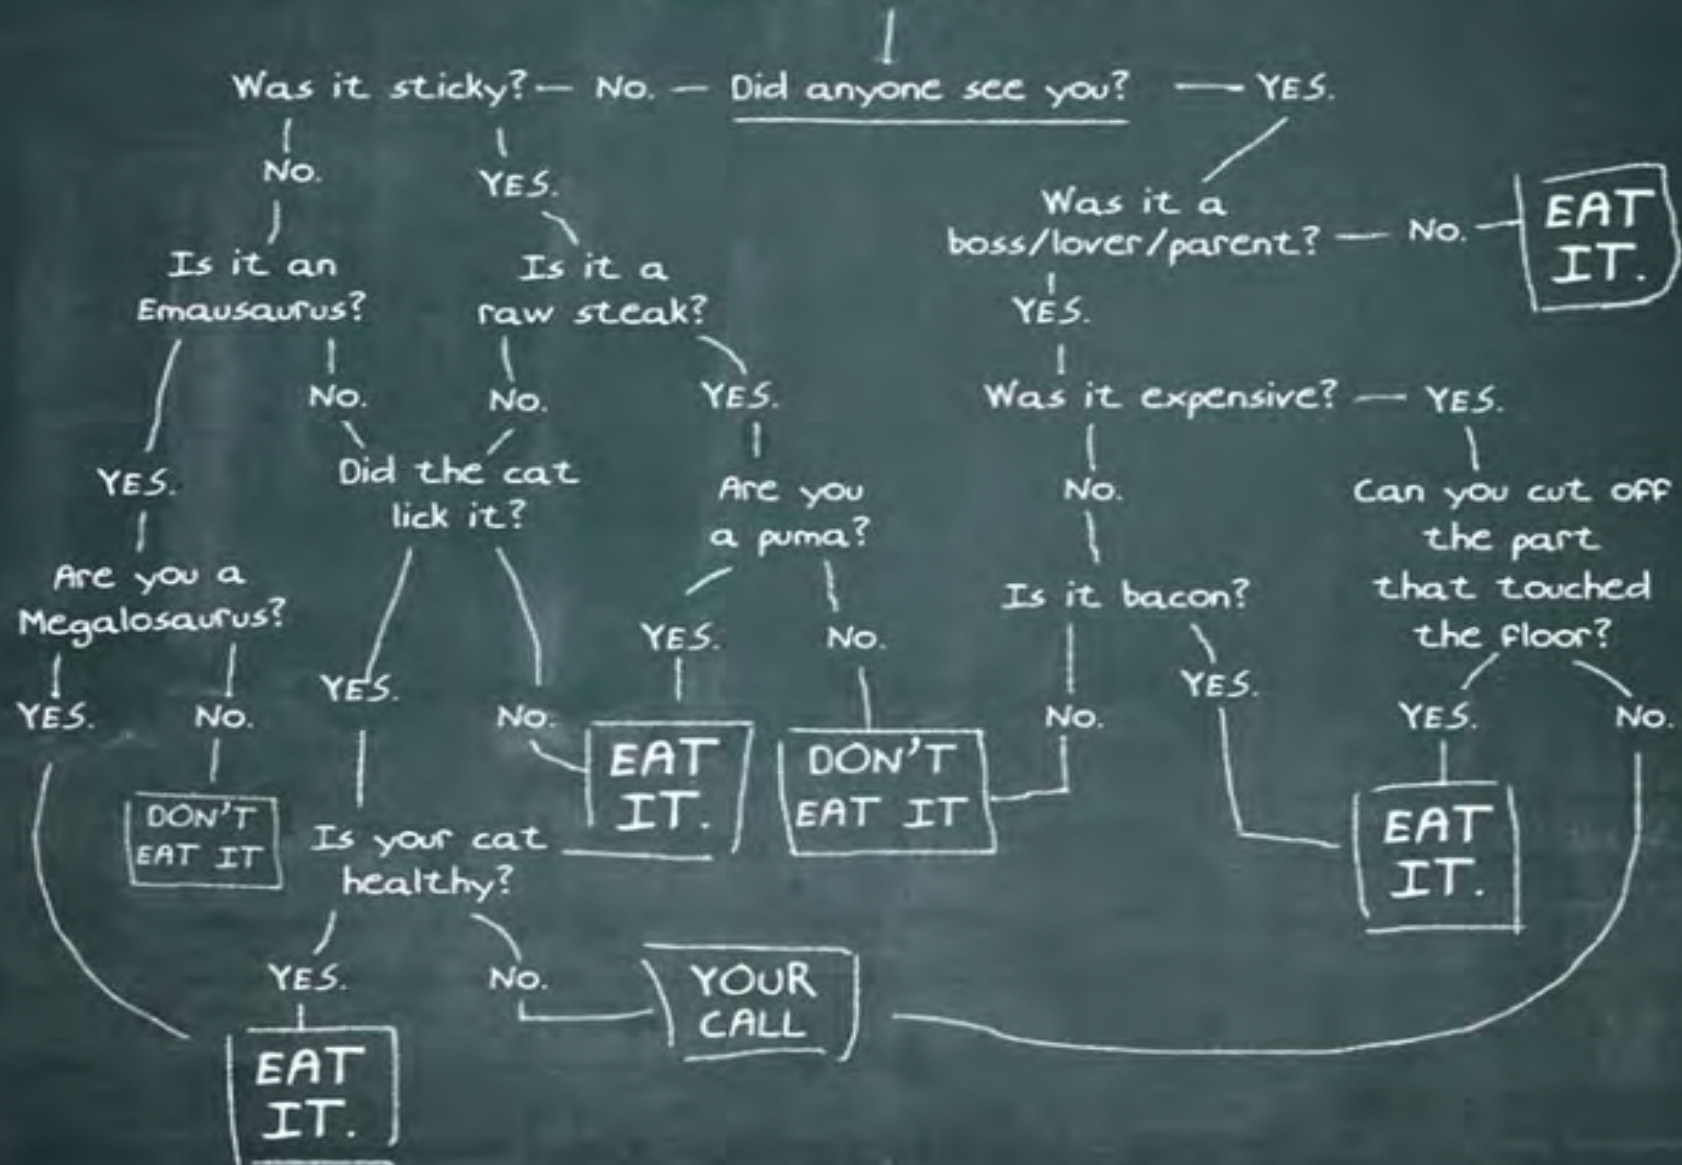 Was it sticky? — No. — Did anyone see you? — YES.
No.
YES.
Was it a
boss/lover/parent? — No.
EAT
IT.
Is it an
Emausaurus?
Is it a
raw steak?
YES.
No.
No.
YES.
Was it expensive? — YES.
YES.
Did the cat
lick it?
Are you
a puma?
No.
Can you cut off
the part
that touched
the floor?
Are you a
Megalosaurus?
YES.
No.
Is it bacon?
YES.
No.
YES.
No.
No.
YES.
YES.
No.
DON'T
EAT IT
EAT
IT.
DON'T
EAT IT
EAT
IT.
Is your cat
healthy?
YES.
No.
YOUR
CALL
EAT
IT.